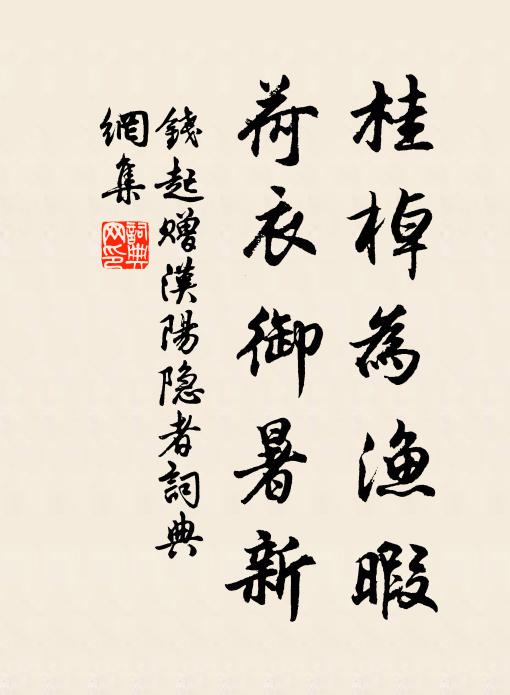 桂棹為漁暇
荷衣御暑新
錢起贈漢陽隐者詞典
網集
詞典网印